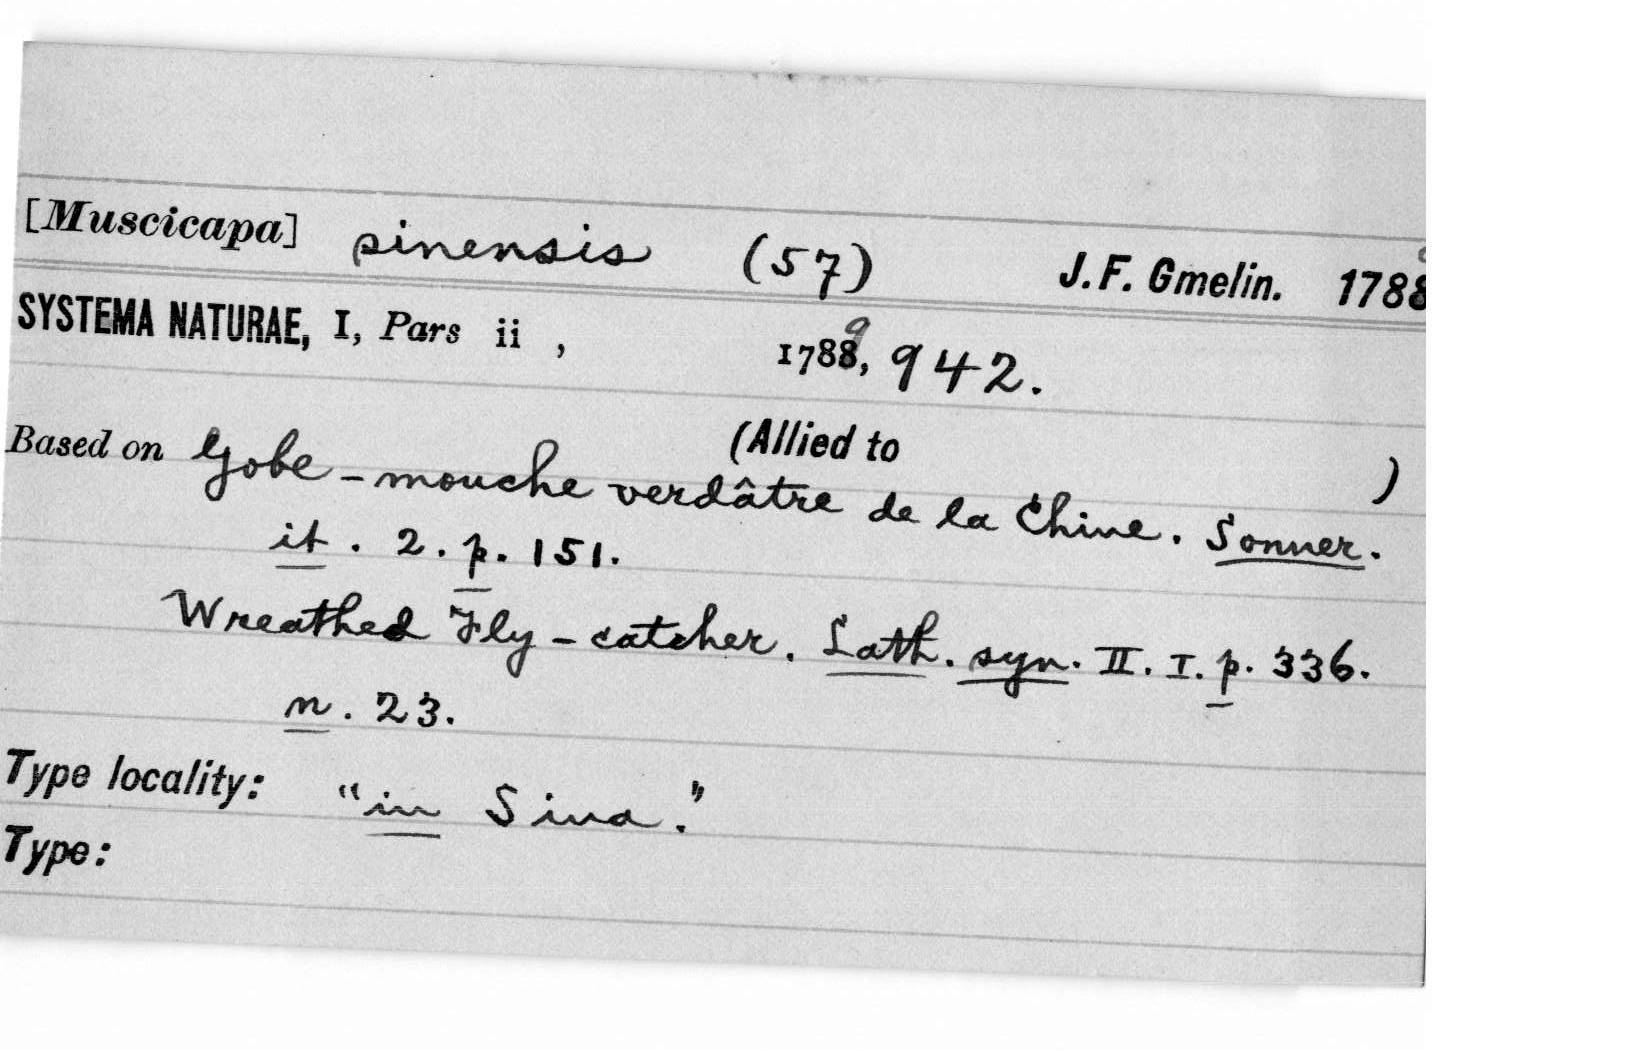 [Muscicapa] sinensis (57) J.F. Gmelin. 1788
SYSTEMA NATURAE, I, Pars ii , 1788, 9 942.
(Allied to )
Based on Gobe-mouche verdâtre de la Chine. Sonner.
it. 2. p. 151.
Wreathed Fly-catcher. Lath. syn. II. I. p. 336.
n. 23.
Type locality: "in Sina."
Type: